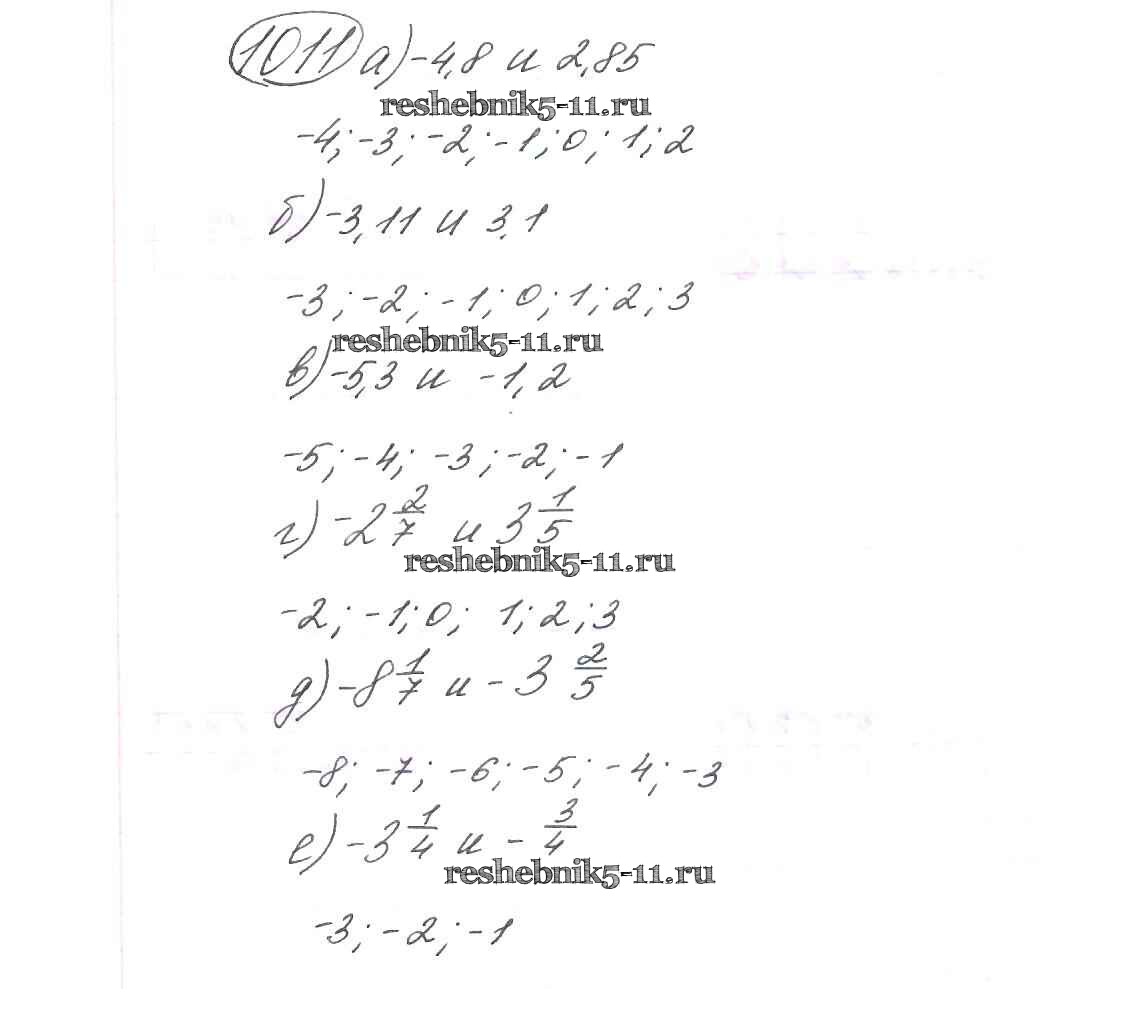 1011 а) -4,8 и 2,85
reshebnik5-11.ru
-4; -3; -2; -1; 0; 1; 2
б) -3,11 и 3,1
-3; -2; -1; 0; 1; 2; 3
reshebnik5-11.ru
в) -5,3 и -1,2
-5; -4; -3; -2; -1
г) -2 2/7 и 3 1/5
reshebnik5-11.ru
-2; -1; 0; 1; 2; 3
д) -8 1/7 и -3 2/5
-8; -7; -6; -5; -4; -3
е) -3 1/4 и - 3/4
reshebnik5-11.ru
-3; -2; -1